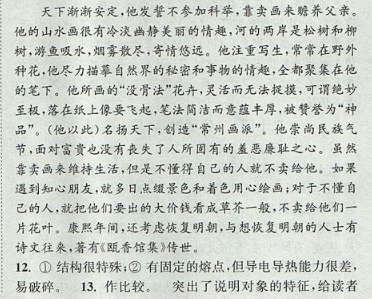 天下渐渐安定,他发誓不参加科举,靠卖画来赡养父亲。
他的山水画很有冷淡幽静美丽的情趣,河的两岸是松树和柳
树,游鱼吸水,烟雾散尽,寄情悠远。他注重写生,常常在野外
种花,他尽力描摹自然界的秘密和事物的情趣,全都聚集在他
的笔下。他所画的“没骨法”花卉,灵活而无法捉摸,可谓绝妙
至极,落在纸上像要飞起,笔法简洁而意蕴丰厚,被赞誉为“神
品”。(他以此)名扬天下,创造“常州画派”。他崇尚民族气
节,面对富贵也没有丧失了人所固有的羞恶廉耻之心。虽然
靠卖画来维持生活,但是不懂得自己的人就不卖给他。如果
遇到知心朋友,就多日点缀景色和着色用心绘画;对于不懂自
己的人,就把他们要出的大价钱看成草芥一般,不卖给他们一
片花叶。康熙年间,还考虑恢复明朝,与想恢复明朝的人士有
诗文往来,著有《瓯香馆集》传世。
12. ① 结构很特殊;② 有固定的熔点,但导电导热能力很差,
易破碎。 13. 作比较。 突出了说明对象的特征,给读者